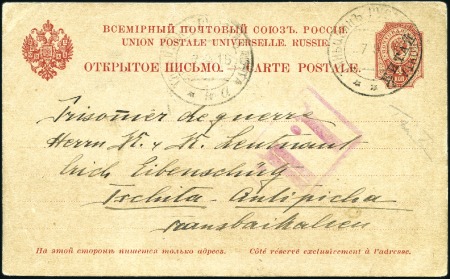 ВСЕМІРНЫЙ ПОЧТОВЫЙ СОЮЗЪ. РОССІЯ.
UNION POSTALE UNIVERSELLE. RUSSIE.
ОТКРЫТОЕ ПИСЬМО. CARTE POSTALE.
КИТАЙ
Prisonnier de guerre
Herrn K. u. K. Leutnant
Erich Eibenschütz
Tschita-Antipicha
Transbaikalien
На этой сторонѣ пишется только адресъ. Côté réservé exclusivement à l'adresse.